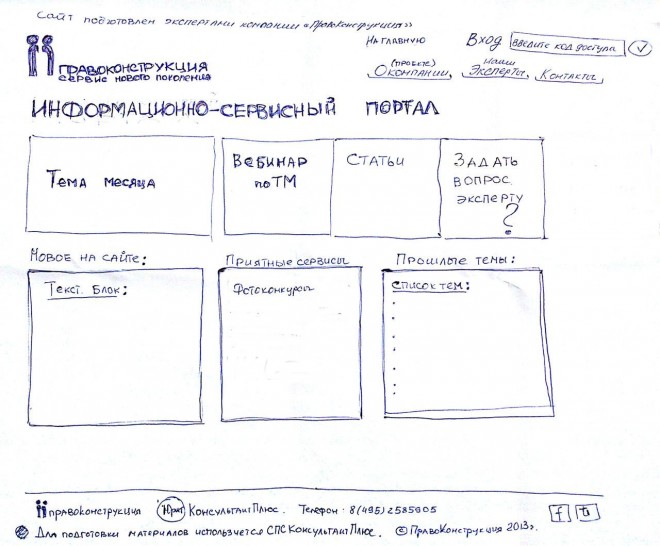 Сайт подготовлен экспертами компании «ПравоКонструкция»
На главную
Вход
введите код доступа
ПРАВОКОНСТРУКЦИЯ
СЕРВИС НОВОГО ПОКОЛЕНИЯ
(ПРОЕКТЕ)
О компании,
Наши
Эксперты,
Контакты,
ИНФОРМАЦИОННО-СЕРВИСНЫЙ ПОРТАЛ
Тема месяца
Вебинар
по ТМ
Статьи
Задать
вопрос
эксперту
?
Новое на сайте:
Приятные сервисы
Прошлые темы:
Текст. Блок:
Фотоконкурсы
список тем:
правоконструкция
КонсультантПлюс. Телефон: 8(495)2585005
f
Для подготовки материалов используется СПС КонсультантПлюс. © ПравоКонструкция 2013г.